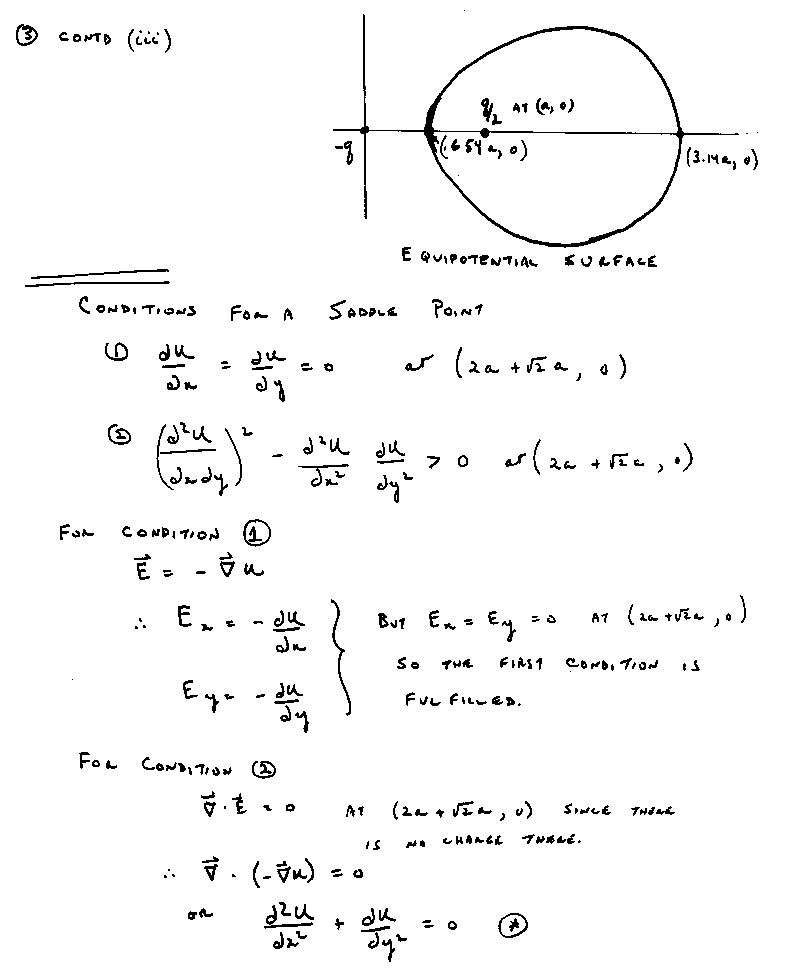 ③ CONTD (iii)
q/2 AT (a, 0)
-q
(.654a, 0)
(3.14a, 0)
EQUIPOTENTIAL SURFACE
CONDITIONS FOR A SADDLE POINT
① ∂u/∂x = ∂u/∂y = 0 at (2a + √2 a, 0)
② (∂²u/∂x∂y)² - ∂²u/∂x² ∂u/∂y² > 0 at (2a + √2 a, 0)
FOR CONDITION ①
E⃗ = - ∇⃗ u
∴ Ex = - ∂u/∂x
Ey = - ∂u/∂y
BUT Ex = Ey = 0 AT (2a + √2 a, 0)
SO THE FIRST CONDITION IS
FULFILLED.
FOR CONDITION ②
∇⃗ · E⃗ = 0 AT (2a + √2 a, 0) SINCE THERE
IS NO CHARGE THERE.
∴ ∇⃗ · (-∇⃗u) = 0
OR ∂²u/∂x² + ∂u/∂y² = 0 ⊛